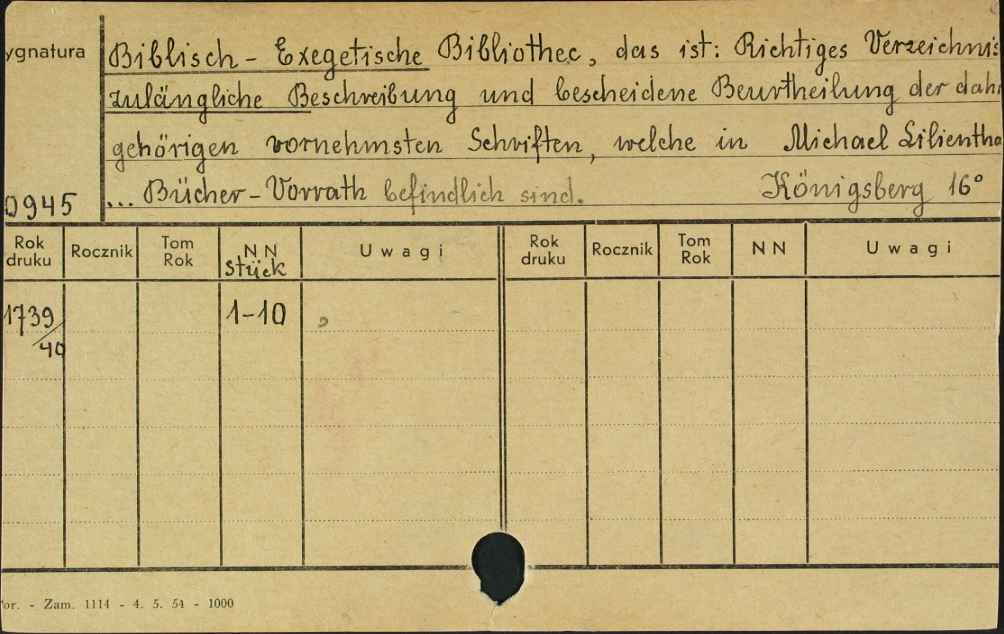 ygnatura
Biblisch - Exegetische Bibliothec, das ist: Richtiges Verzeichnis
zulängliche Beschreibung und bescheidene Beurtheilung der dah
gehörigen vornehmsten Schriften, welche in Michael Lilientha
0945 ... Bücher - Vorrath befindlich sind. Königsberg 16°
Rok druku Rocznik Tom Rok NN Stück Uwagi Rok druku Rocznik Tom Rok NN Uwagi
1739/40 1-10
or. - Zam. 1114 - 4. 5. 54 - 1000